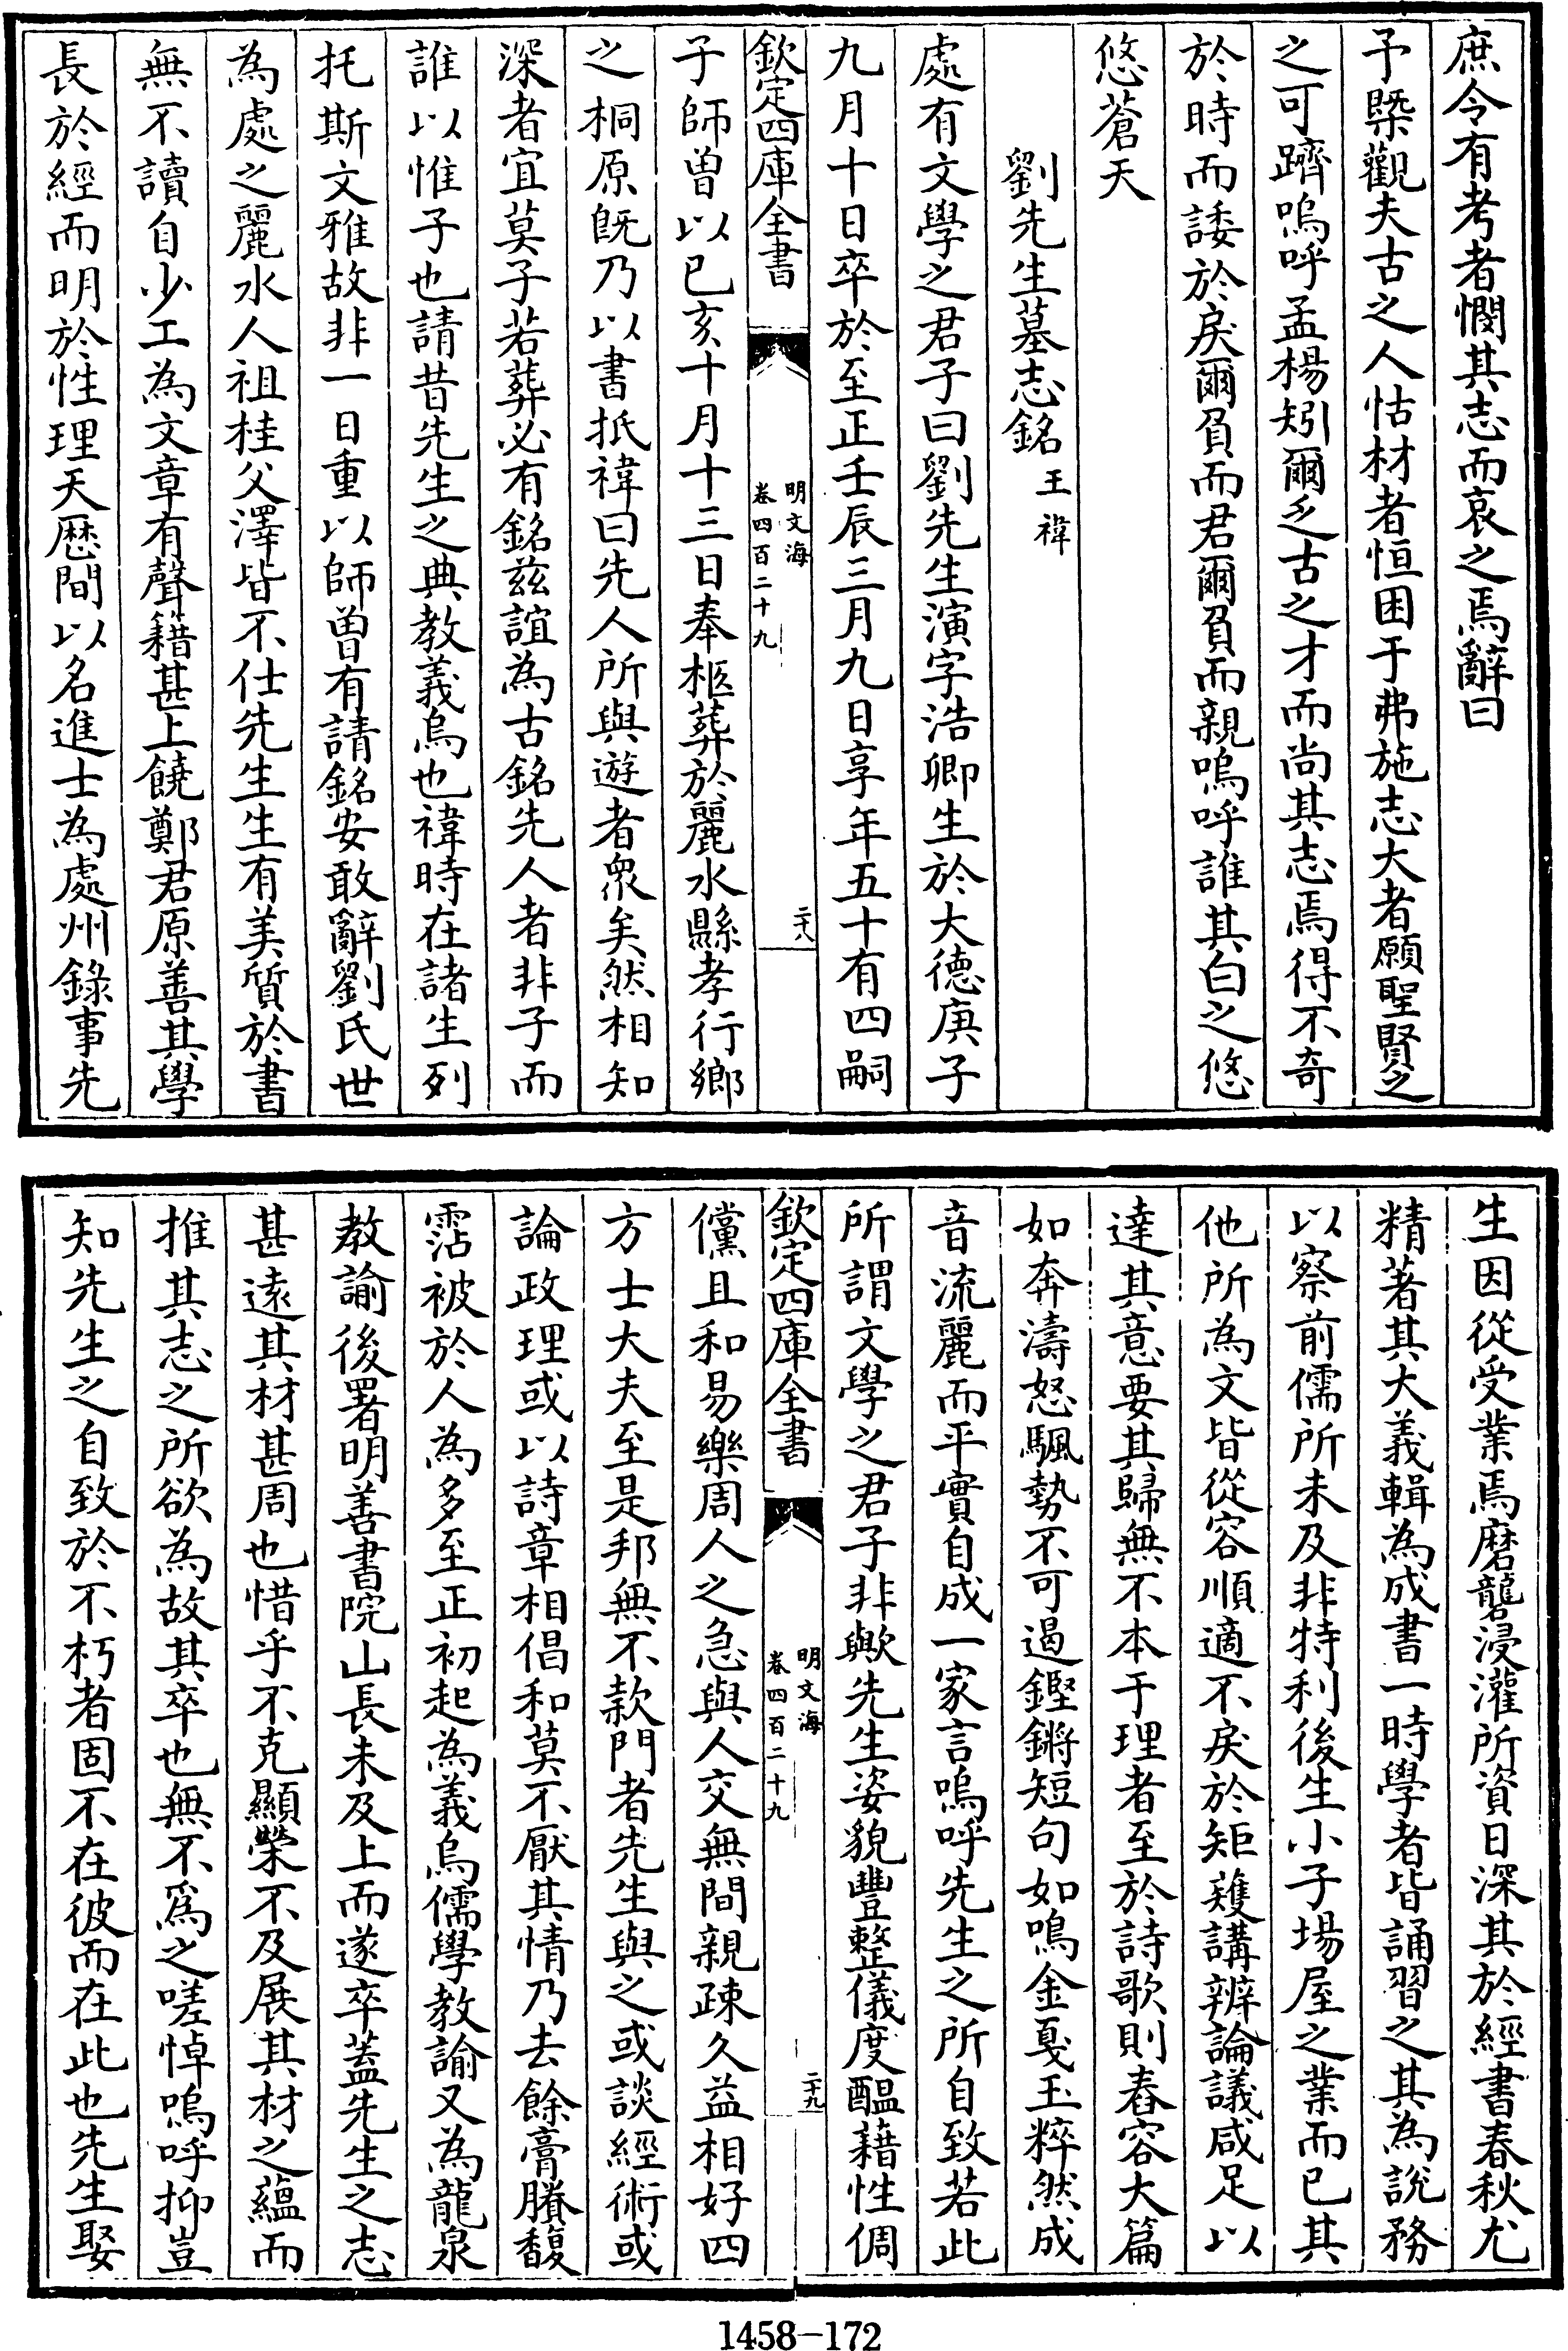 庶令有考者憫其志而哀之焉辭曰
予槩觀夫古之人怙材者恒困于弗施志大者願聖賢之
之可躋嗚呼孟楊矧爾乏古之才而尚其志焉得不奇
於時而諉於戾爾負而君爾負而親嗚呼誰其白之悠
悠蒼天
劉先生墓志銘王禕
處有文學之君子曰劉先生演字浩卿生於大德庚子
九月十日卒於至正壬辰三月九日享年五十有四嗣
欽定四庫全書
明文海
卷四百二十九
二十八
子師曾以已亥十月十三日奉柩葬於麗水縣孝行鄉
之桐原旣乃以書抵禕曰先人所與遊者衆矣然相知
深者宜莫子若葬必有銘玆誼為古銘先人者非子而
誰以惟子也請昔先生之典教義烏也禕時在諸生列
托斯文雅故非一日重以師曾有請銘安敢辭劉氏世
為處之麗水人祖桂父澤皆不仕先生生有美質於書
無不讀自少工為文章有聲籍甚上饒鄭君原善其學
長於經而明於性理天歴間以名進士為處州錄事先
生因從受業焉磨礲浸灌所資日深其於經書春秋尤
精著其大義輯為成書一時學者皆誦習之其為說務
以察前儒所未及非特利後生小子場屋之業而已其
他所為文皆從容順適不戾於矩矱講辨論議咸足以
達其意要其歸無不本于理者至於詩歌則舂容大篇
如奔濤怒颿勢不可遏鏗鏘短句如鳴金戛玉粹然成
音流麗而平實自成一家言嗚呼先生之所自致若此
所謂文學之君子非歟先生姿貌豐整儀度醖藉性倜
欽定四庫全書
明文海
卷四百二十九
二十九
儻且和易樂周人之急與人交無間親疎久益相好四
方士大夫至是邦無不款門者先生與之或談經術或
論政理或以詩章相倡和莫不厭其情乃去餘膏賸馥
霑被於人為多至正初起為義烏儒學教諭又為龍泉
教諭後署明善書院山長未及上而遂卒蓋先生之志
甚遠其材甚周也惜乎不克顯榮不及展其材之蘊而
推其志之所欲為故其卒也無不爲之嗟悼嗚呼抑豈
知先生之自致於不朽者固不在彼而在此也先生娶
1458-172